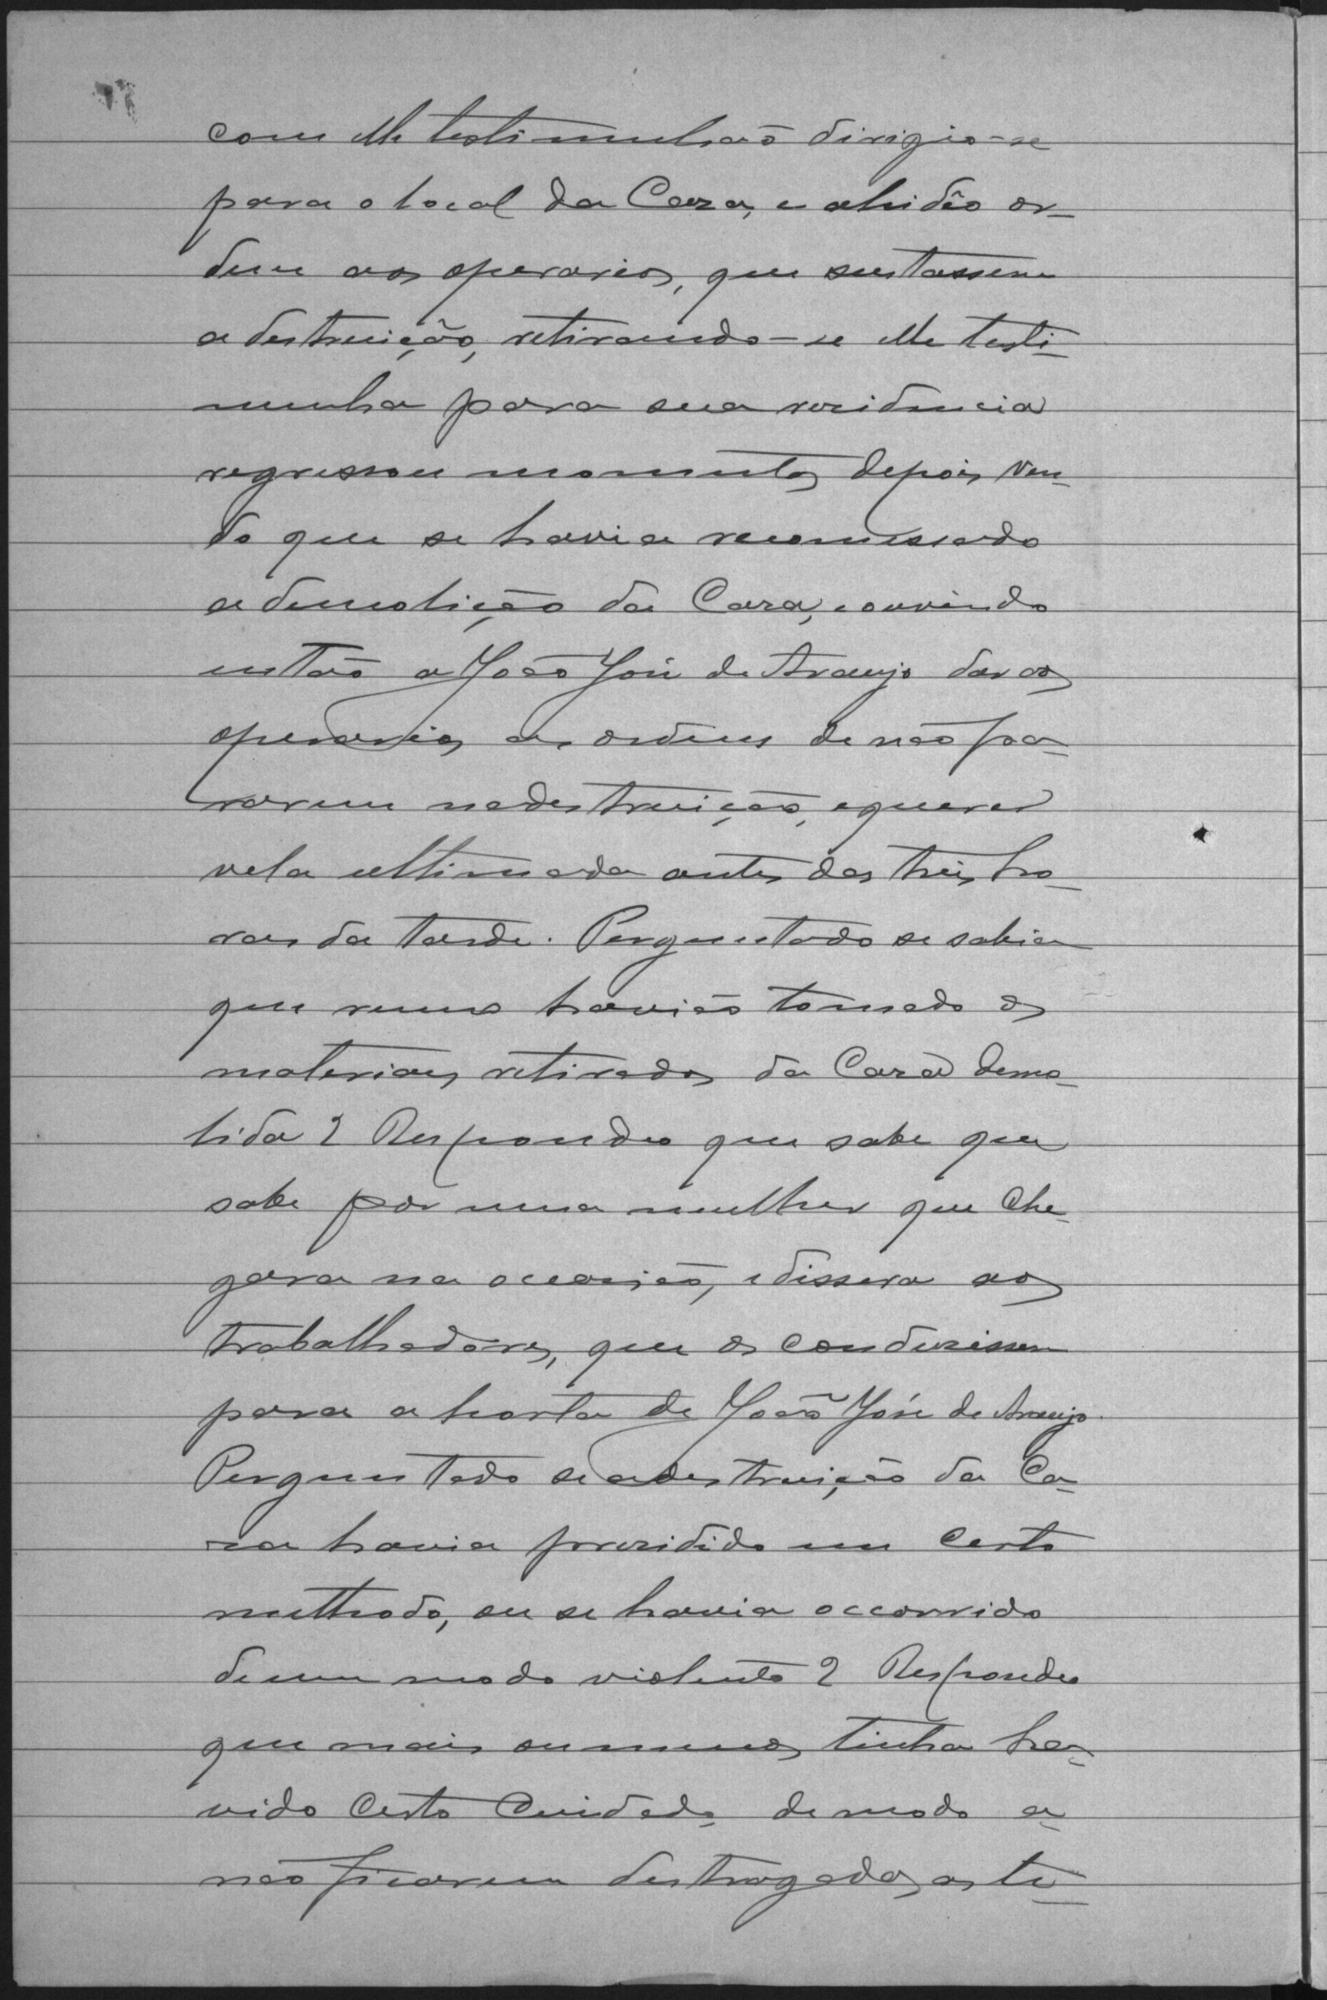 com elle testimunha o dirigio-se
para o local da Caza, e ahi dêo or-
dem aos operarios, que sustassem
a destruição, retirando-se elle testi-
munha para sua rezidencia
regressou momentos depois ven-
do que se havia recomessado
a demolição da Caza, e ouvindo
então a João José de Araujo dar aos
operarios as ordens de não pa-
rarem na destruição, e querer
vela ultimada antes das treis ho-
ras da tarde. Perguntado se sabia
que rumo havião tomado os
materiaes retirados da Caza demo-
lida? Respondeo que sabe que
sabe por uma mulher que che-
gara na occasião, e dissera aos
trabalhadores, que os conduzissem
para a horta de João José de Araujo.
Perguntado se a destruição da Ca-
za havia prezidido um certo
methodo, ou se havia occorrido
de um modo violento? Respondeo
que mais ou menos tinha ha-
vido certo cuidado, de modo a
não ficarem destroçados as te-